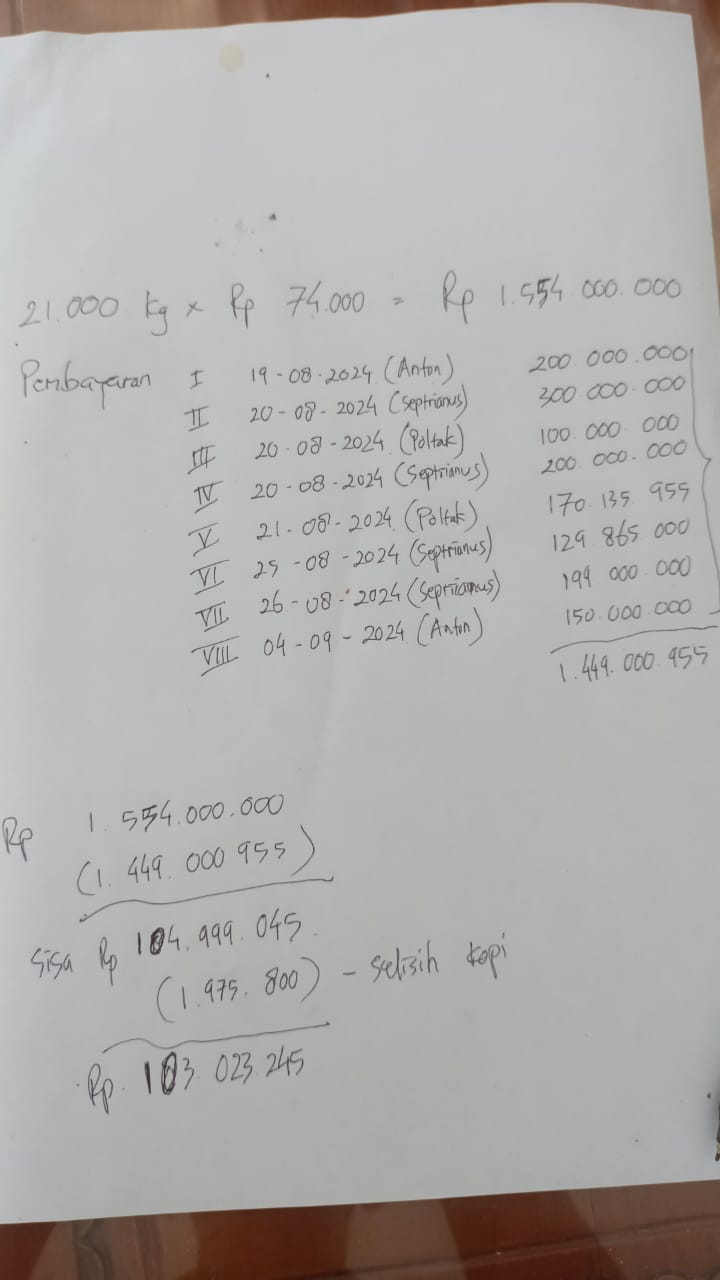 21.000 kg x Rp 74.000 = Rp 1.554.000.000
Pembayaran I 19-08-2024 (Anton) 200.000.000
II 20-08-2024 (Septrianus) 300.000.000
III 20-08-2024 (Poltak) 100.000.000
IV 20-08-2024 (Septrianus) 200.000.000
V 21-08-2024 (Poltak) 170.135.955
VI 25-08-2024 (Septrianus) 129.865.000
VII 26-08-2024 (Septrianus) 199.000.000
VIII 04-09-2024 (Anton) 150.000.000
1.449.000.955
Rp 1.554.000.000
(1.449.000.955)
Sisa Rp 104.999.045.
(1.975.800) - selisih kopi
Rp. 103.023.245